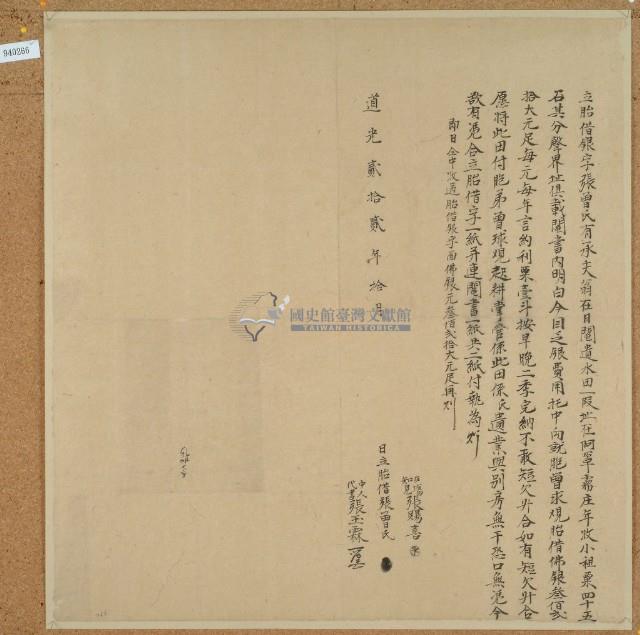 立胎借銀字張曾氏有承夫翁在日鬮遺水田一段址在阿罩霧庄年收小租粟四十五
石其分聲界址俱載鬮書內明白今因乏銀費用托中向就胞曾求覌胎借佛銀叁佰弍
拾大元足每元每年言約利粟壹斗按早晚二季完納不敢短欠升合如有短欠升合
愿將此田付胞弟曾球覌起耕掌管係此田係氏遺業與別房無干恐口無憑今
欲有憑合立胎借字一紙并連鬮書一紙共二紙付執為炤
即日仝中收過胎借銀字面佛銀元叁佰弍拾大元足再炤
道光貳拾貳年拾月
日立胎借張曾氏
知見張賜喜
中人
代書張玉霖
國史館臺灣文獻館
TAIWAN HISTORICA
940266